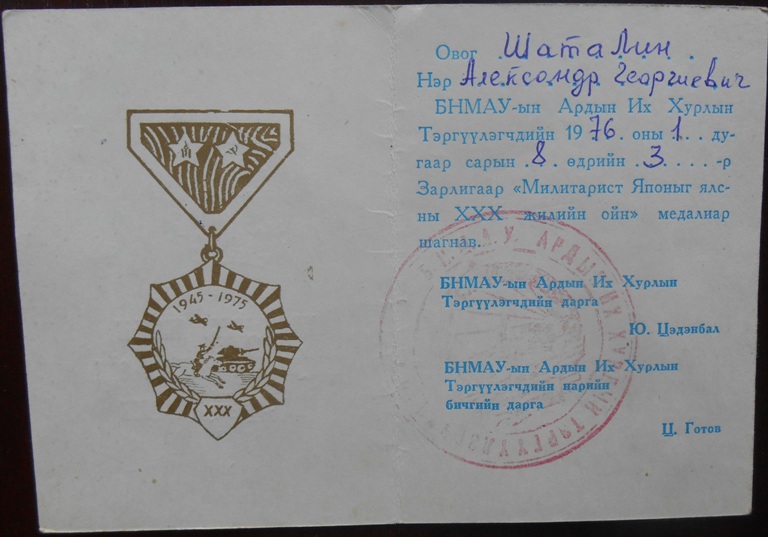 1945-1975
XXX
Овог Шаталин
Нэр Александр Георгиевич
БНМАУ-ын Ардын Их Хурлын
Тэргүүлэгчдийн 1976. оны 1. . ду-
гаар сарын .8. өдрийн .3. . . . -р
Зарлигаар «Милитарист Японыг ялс-
ны XXX жилийн ойн» медалиар
шагнав.
БНМАУ-ын Ардын Их Хурлын
Тэргүүлэгчдийн дарга
Ю. Цэдэнбал
БНМАУ-ын Ардын Их Хурлын
Тэргүүлэгчдийн нарийн
бичгийн дарга
Ц. Готов
Б.Н.М.А.У. АРДЫН ИХ ХУРЛЫН ТЭРГҮҮЛЭГЧ